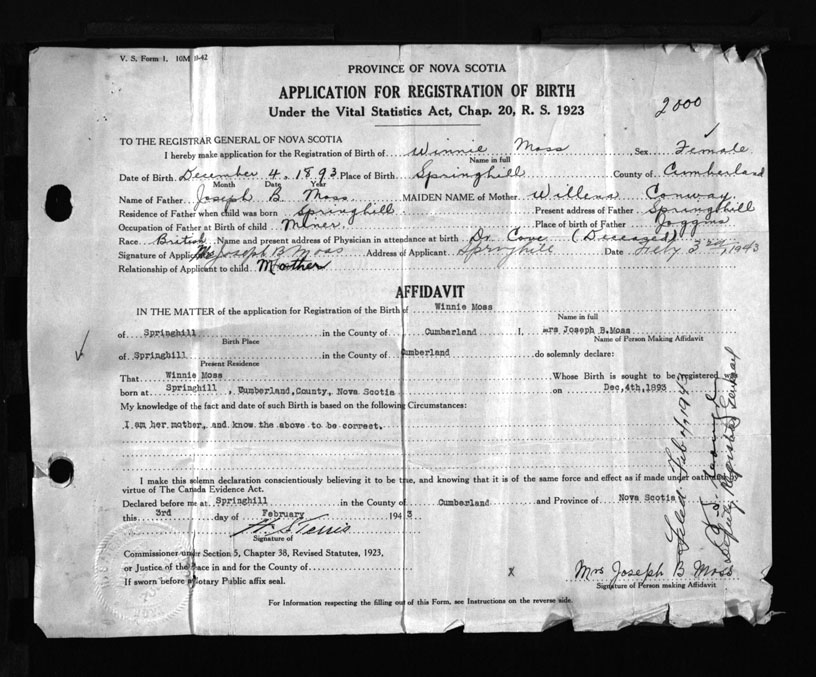 V. S. Form 1. 10M 11-42
PROVINCE OF NOVA SCOTIA
APPLICATION FOR REGISTRATION OF BIRTH
Under the Vital Statistics Act, Chap. 20, R. S. 1923
2000
TO THE REGISTRAR GENERAL OF NOVA SCOTIA
I hereby make application for the Registration of Birth of Winnie Moss Sex Female
Name in full
Date of Birth December 4, 1893 Place of Birth Springhill County of Cumberland
Month Date Year
Name of Father Joseph B. Moss MAIDEN NAME of Mother Willena Conway
Residence of Father when child was born Springhill Present address of Father Springhill
Occupation of Father at Birth of child Miner. Place of birth of Father Joggins
Race British Name and present address of Physician in attendance at birth Dr Cove (Deceased)
Signature of Applicant Mrs Joseph B Moss Address of Applicant Springhill Date Feby 3rd, 1943
Relationship of Applicant to child Mother
AFFIDAVIT
IN THE MATTER of the application for Registration of the Birth of Winnie Moss
Name in full
of Springhill in the County of Cumberland I, Mrs Joseph B. Moss
Birth Place Name of Person Making Affidavit
of Springhill in the County of Cumberland do solemnly declare:
Present Residence
That Winnie Moss Whose Birth is sought to be registered was
born at Springhill, Cumberland, County, Nova Scotia on Dec, 4th, 1893
My knowledge of the fact and date of such Birth is based on the following Circumstances:
I am her mother, and know the above to be correct.
I make this solemn declaration conscientiously believing it to be true, and knowing that it is of the same force and effect as if made under oath
virtue of The Canada Evidence Act.
Declared before me at Springhill in the County of Cumberland and Province of Nova Scotia
this 3rd day of February 1943
Signature of
Commissioner under Section 5, Chapter 38, Revised Statutes, 1923,
or Justice of the Peace in and for the County of
If sworn before a Notary Public affix seal.
x Mrs Joseph B Moss
Signature of Person making Affidavit
For Information respecting the filling out of this Form, see Instructions on the reverse side.
Filed Feb 4, 1943
Deputy Registrar General